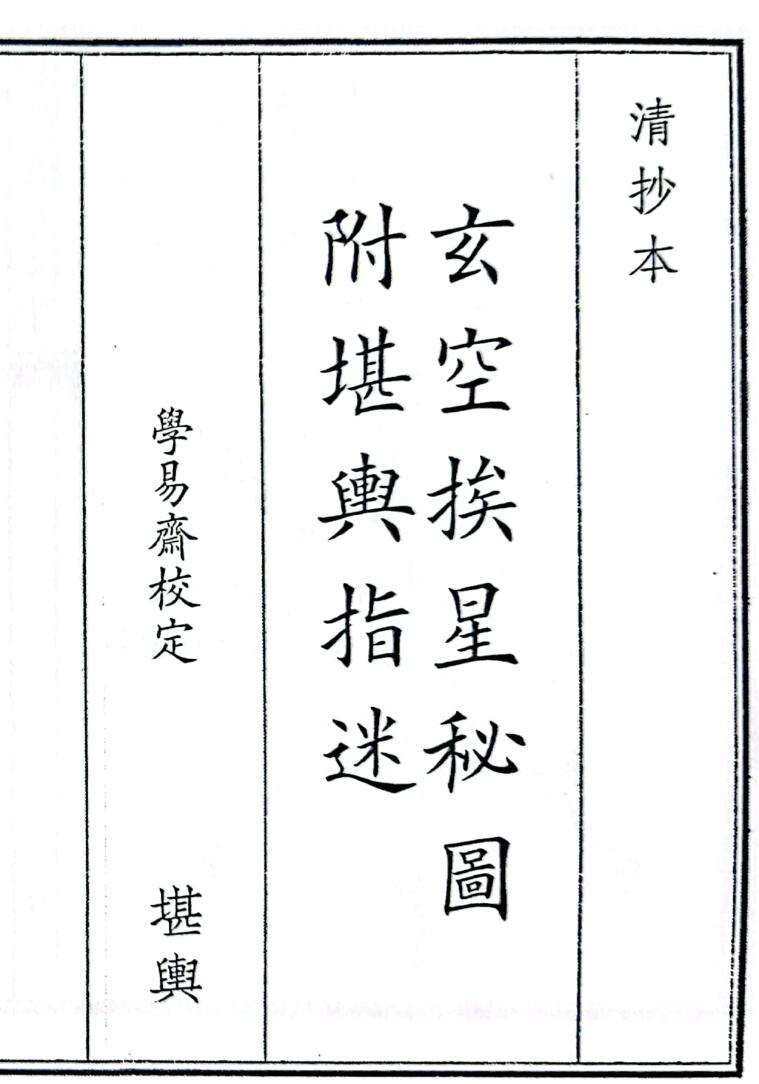 清抄本
玄空挨星秘圖
附堪輿指迷
學易齋校定
堪輿